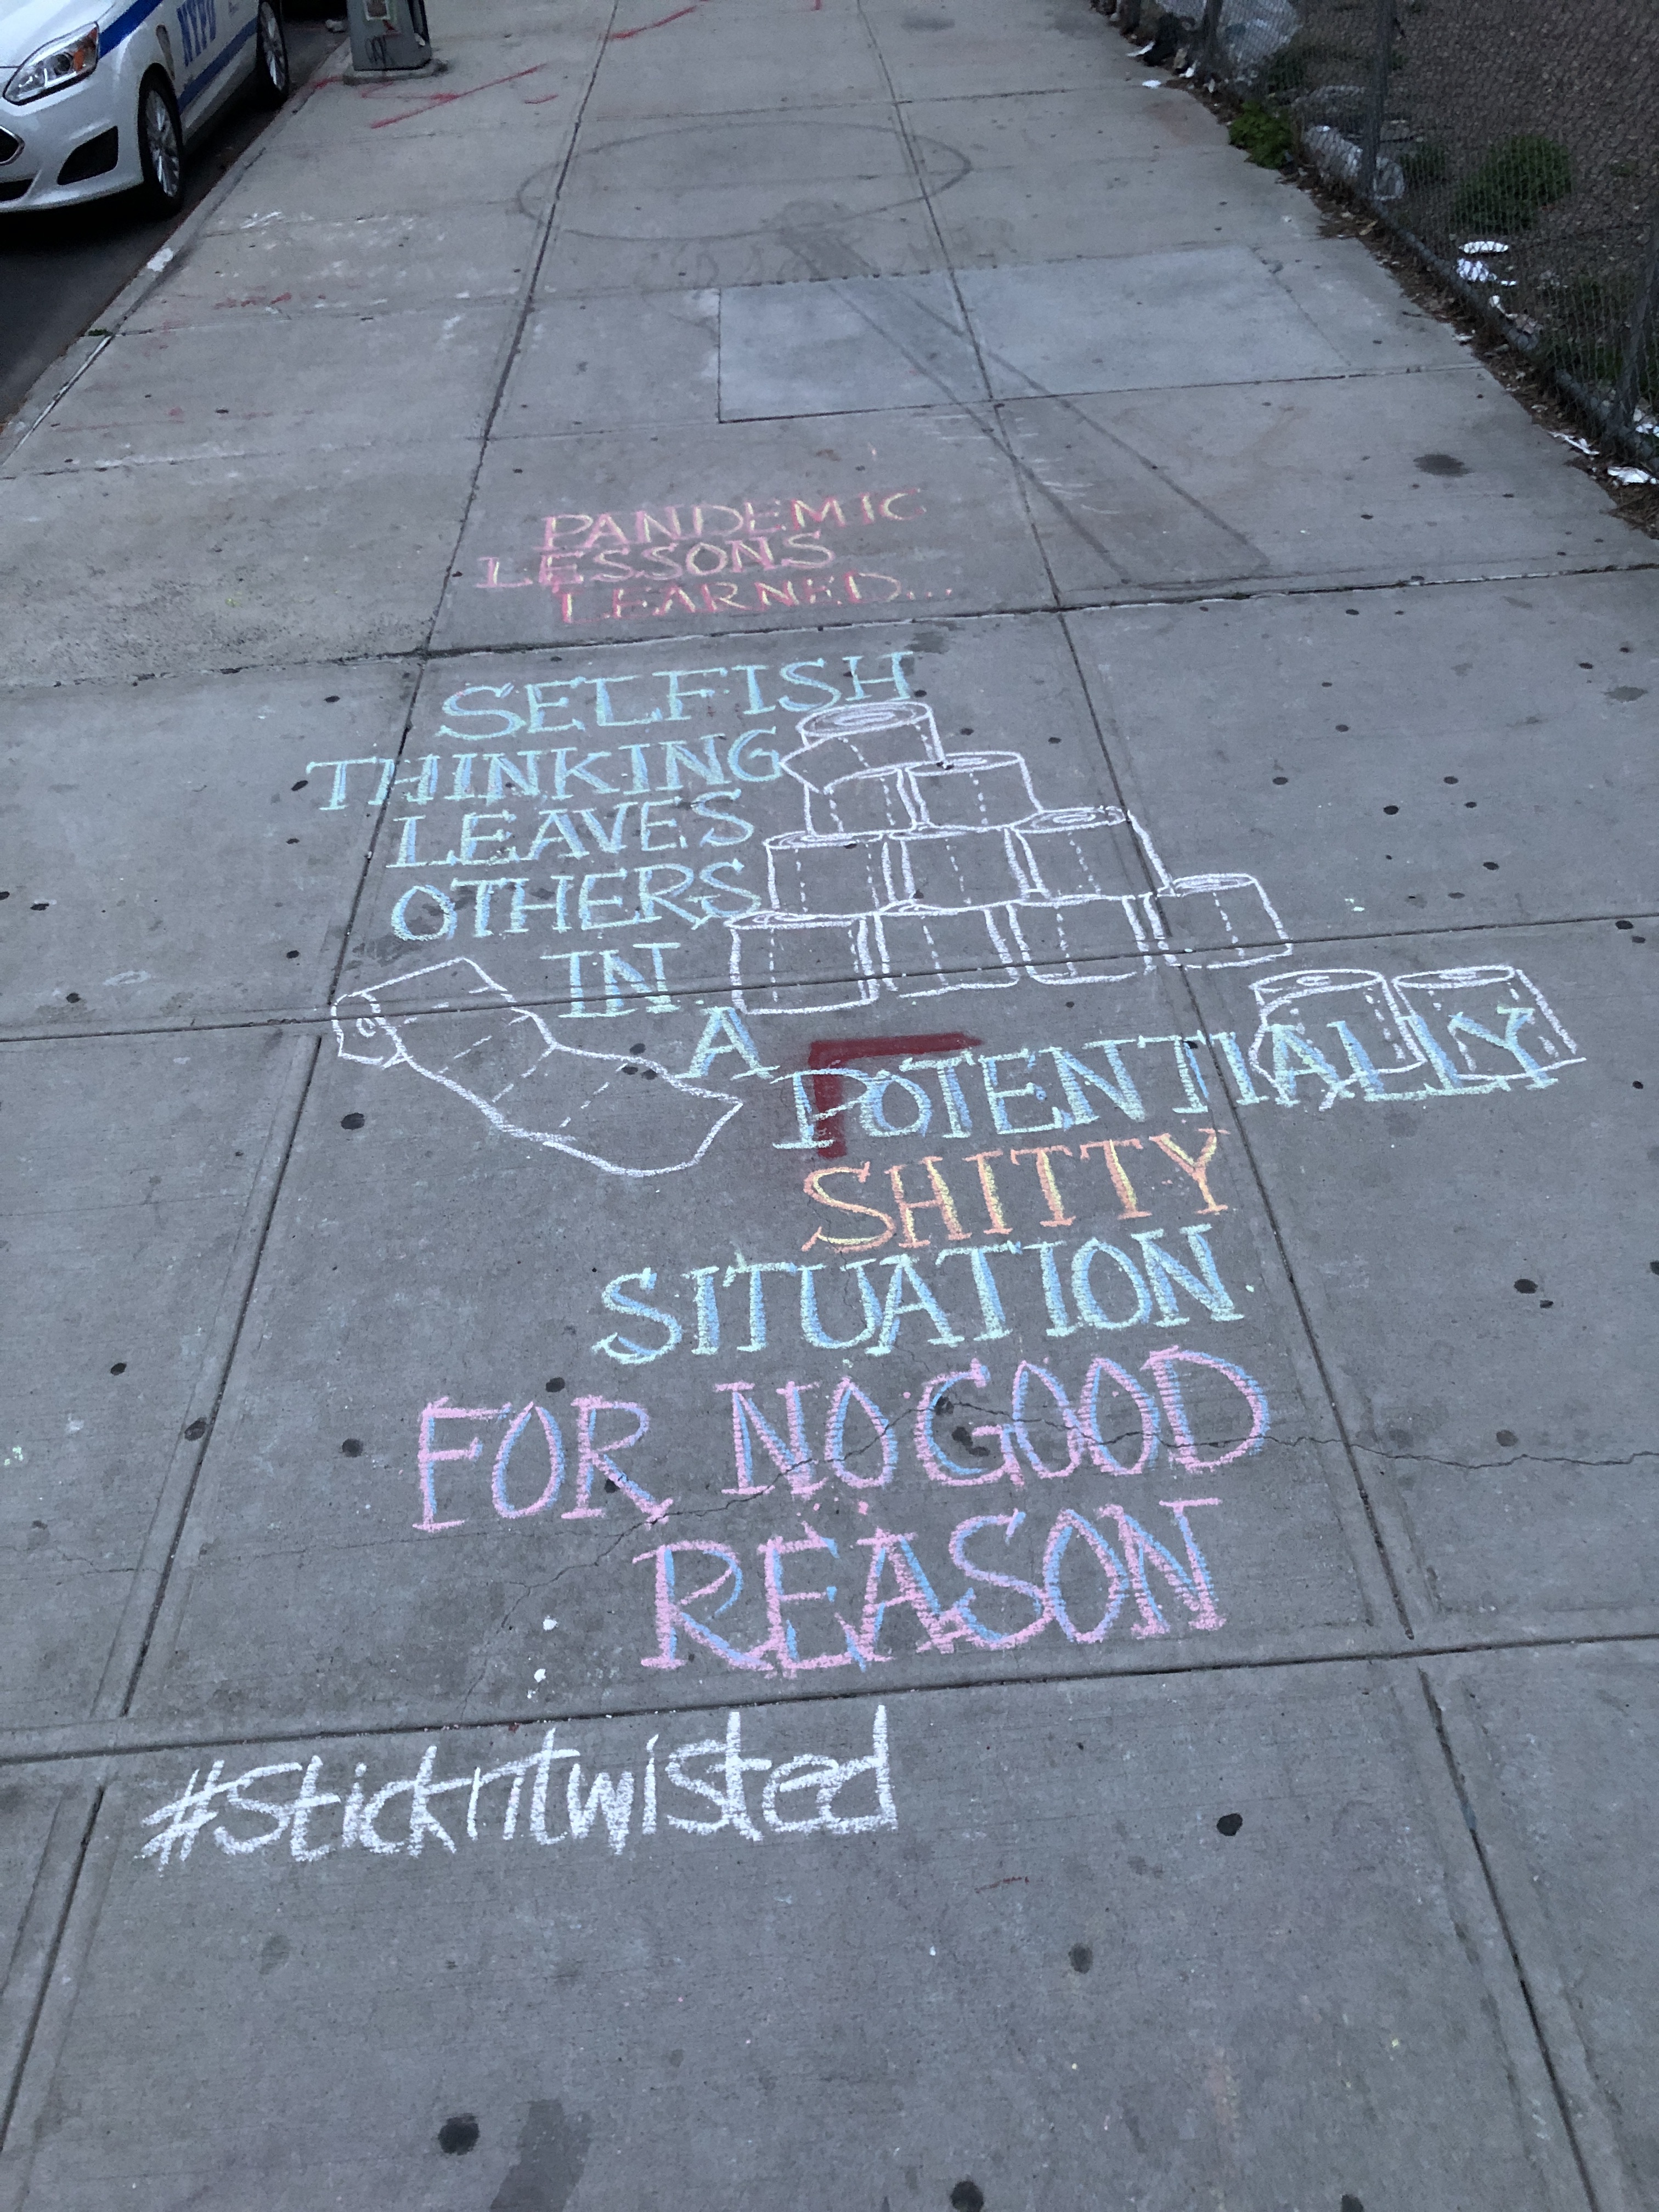 NYPD
PANDEMIC
LESSONS
LEARNED...
SELFISH
THINKING
LEAVES
OTHERS
IN
A
POTENTIALLY
SHITTY
SITUATION
FOR NO GOOD
REASON
#Stickntwisted